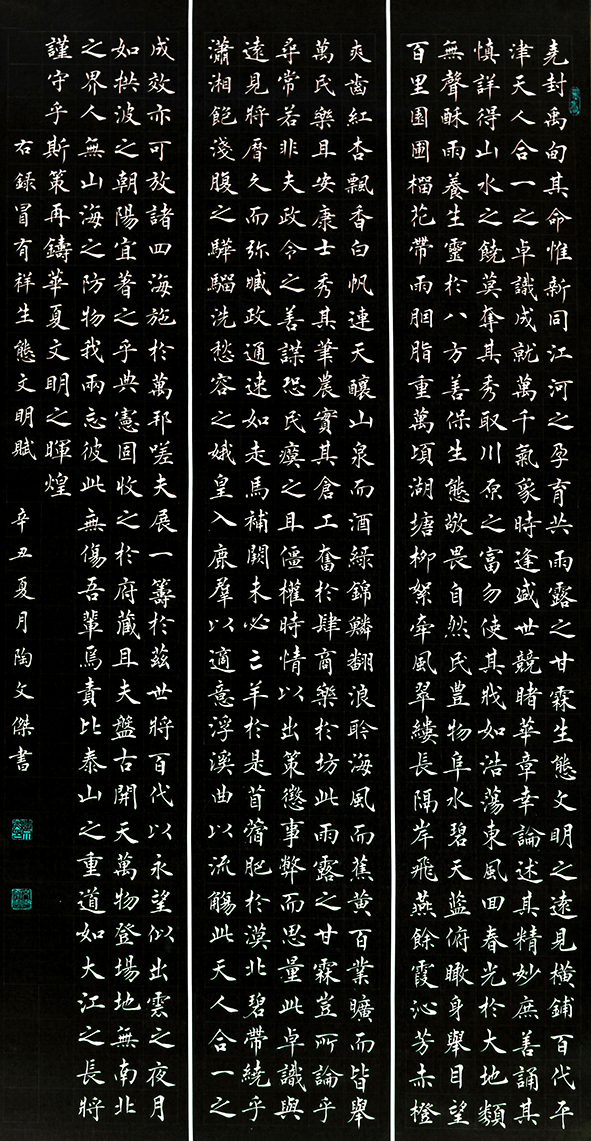 堯封禹甸其命惟新同江河之孕育共雨露之甘霖生態文明之遠見橫鋪百代平
津天人合一之卓識成就萬千氣象時逢盛世競睹華章幸論述其精妙庶善誦其
慎詳得山水之饒莫奪其秀取川原之富勿使其戕如浩蕩東風回春光於大地類
無聲酥雨養生靈於八方善保生態敬畏自然民豐物阜水碧天藍俯瞰身舉目望
百里園圃榴花帶雨胭脂重萬頃湖塘柳絮牽風翠縷長隔岸飛燕餘霞沁芳赤橙
爽齒紅杏飄香白帆連天釀山泉而酒綠錦鱗翻浪聆海風而蕉黃百業曠而皆舉
萬民樂且安康士秀其筆農實其倉工奮於肆商樂於坊此雨露之甘霖豈所論乎
尋常若非夫政令之善謀恐民瘼之且僵權時情以出策懲事弊而思量此卓識與
遠見將曆久而弥臧政通速如走馬補闕未必亡羊於是首蓿肥於漠北碧帶繞乎
瀟湘飽淺腹之驊騮洗愁容之娥皇入鹿羣以適意浮溪曲以流觴此天人合一之
成效亦可放諸四海施於萬邦嗟夫展一籌於茲世將百代以永望似出雲之夜月
如拱波之朝陽宜著之乎典憲固收之於府藏且夫盤古開天萬物登場地無南北
之界人無山海之防物我兩忘彼此無傷吾輩焉責比泰山之重道如大江之長將
謹守乎斯策再鑄華夏文明之暉煌
右錄冒有祥生態文明賦 辛丑夏月陶文傑書